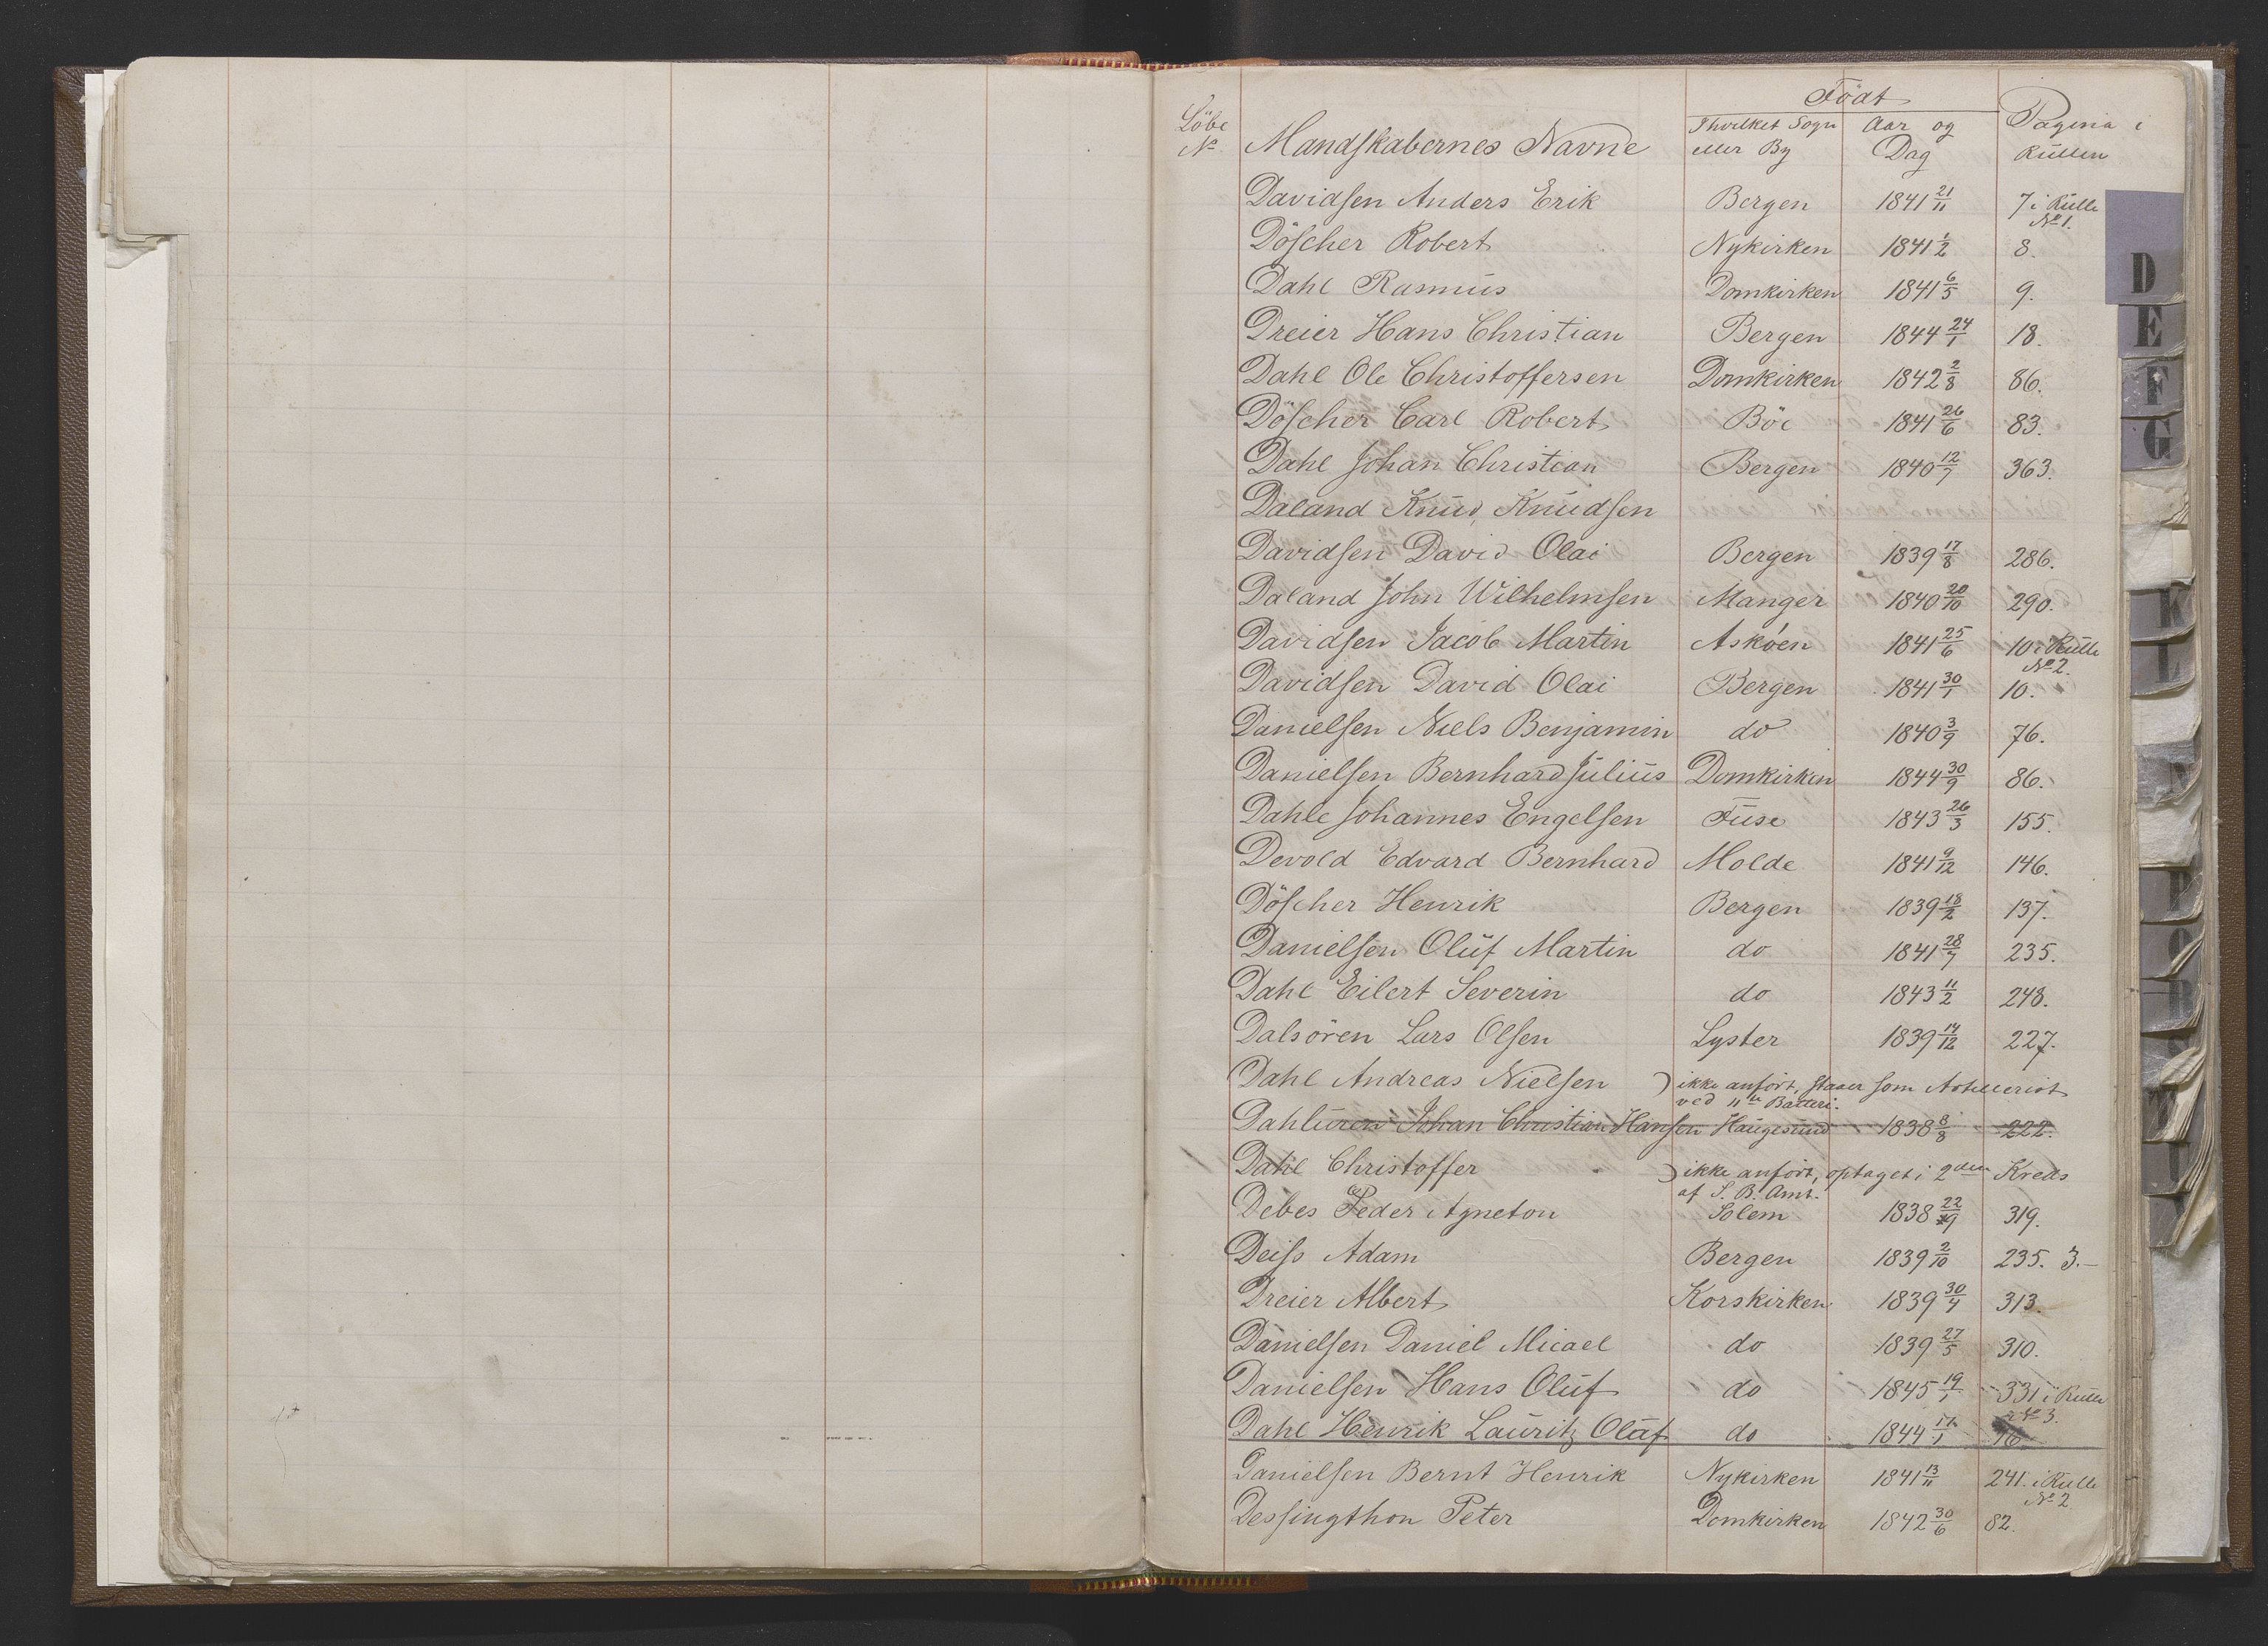 Födt
Löbe Mandskabernes Navne Ihvilket Sogn Aar og Pagina i
No eller By Dag Rullen
Davidsen Anders Erik Bergen 1841 21/11 7 i Rulle No 1.
Döscher Robert Nykirken 1841 1/2 8.
Dahl Rasmus Domkirken 1841 6/5 9.
Dreier Hans Christian Bergen 1844 24/1 18.
Dahl Ole Christoffersen Domkirken 1842 2/8 86.
Döscher Carl Robert Böe 1841 26/6 83.
Dahl Johan Christian Bergen 1840 12/7 363.
Daland Knud Knudsen
Davidsen David Olai Bergen 1839 17/8 286.
Daland John Wilhelmsen Manger 1840 20/10 290.
Davidsen Jacob Martin Asköen 1841 25/6 10 i Rulle No 2.
Davidsen David Olai Bergen 1841 30/1 10.
Danielsen Niels Benjamin do 1840 3/9 76.
Danielsen Bernhard Julius Domkirken 1844 30/9 86.
Dahle Johannes Engelsen Fuse 1843 26/3 155.
Devold Edvard Bernhard Molde 1841 9/12 146.
Döscher Henrik Bergen 1839 18/2 137.
Danielsen Oluf Martin do 1841 28/7 235.
Dahl Eilert Severin do 1843 11/2 248.
Dalsören Lars Olsen Lyster 1839 14/12 227.
Dahl Andreas Nielsen ) ikke anfört, staaer som Artillerist
ved 11te Batteri.
Dahluren Johan Christian Hansen Haugesund 1838 8/8 222.
Dahl Christoffer ) ikke anfört, optaget i 2den Kreds
af S. B. Amt.
Debes Peder Agneton Solem 1838 22/9 319.
Deiss Adam Bergen 1839 2/10 235. 3.
Dreier Albert Korskirken 1839 30/4 313.
Danielsen Daniel Micael do 1839 27/5 310.
Danielsen Hans Oluf do 1845 19/1 331 i Rulle
No 3.
Dahl Henrik Lauritz Olaf do 1844 17/1 16
Danielsen Bernt Henrik Nykirken 1841 13/11 241. i Rulle
No 2
Dessingthon Peter Domkirken 1842 30/6 82.
D
E
F
G
K
L
N
P